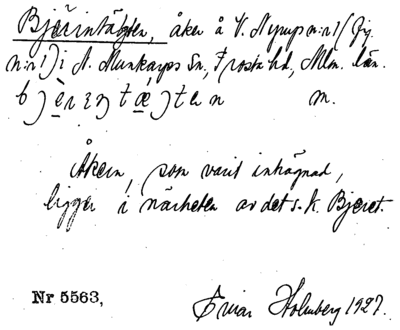 Bjärintäkten, åker å V. Nyrup n:r 1 (Jfr
n:r 1) i N. Munkarps Sn, Frosta hd, Mlm. län.
m.
Åkern, som varit inhägnad,
ligger i närheten av det s. k. Bjeret.
Nr 5563,
Einar Holmberg 1927.